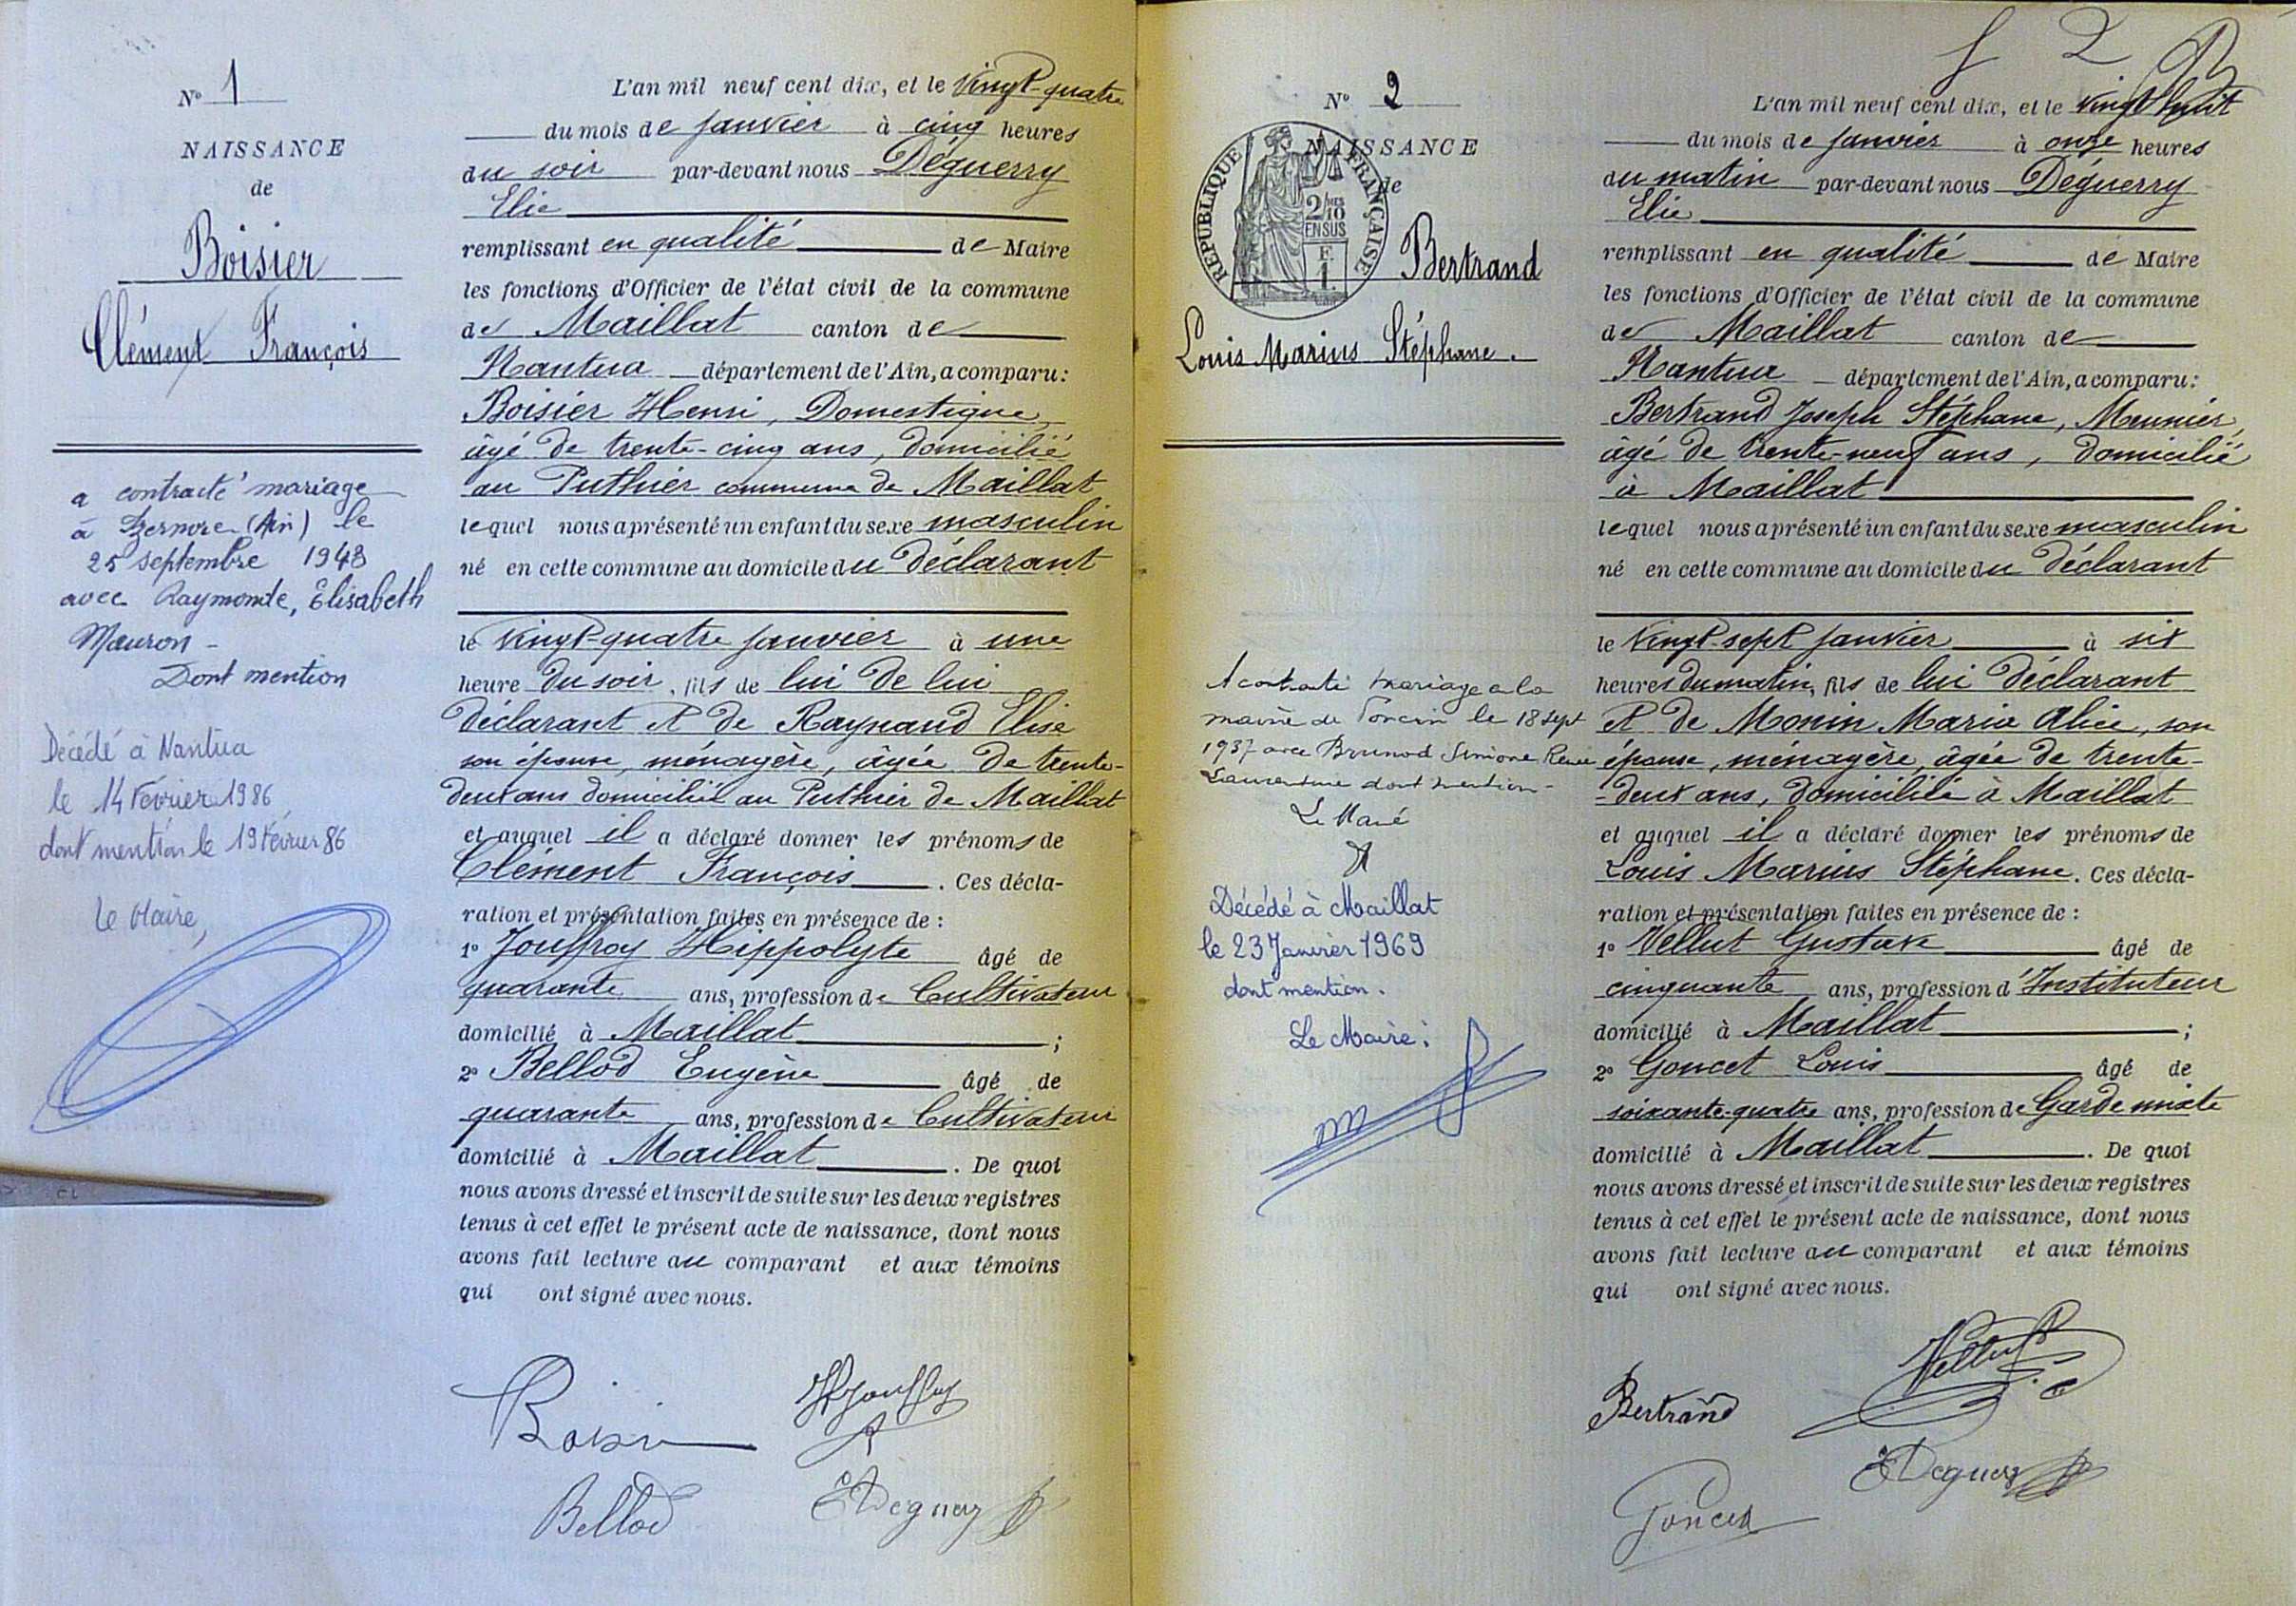 N° 1
NAISSANCE
de
Boisier
Clément François
a contracté mariage
à Izernore (Ain) le
25 septembre 1948
avec Raymonde, Elisabeth
Mauron -
Dont mention
Décédé à Nantua
le 14 Février 1986
dont mention le 19 Février 86
le Maire,
L'an mil neuf cent dix, et le Vingt-quatre
du mois de Janvier à cinq heures
du soir par-devant nous Déguerry
Elie
remplissant en qualité de Maire
les fonctions d'Officier de l'état civil de la commune
de Maillat canton de
Nantua département de l'Ain, a comparu :
Boisier Henri, Domestique,
âgé de trente-cinq ans, domicilié
au Puthier commune de Maillat
lequel nous a présenté un enfant du sexe masculin
né en cette commune au domicile du déclarant
le Vingt-quatre Janvier à une
heure du soir, fils de lui de lui
déclarant et de Raynaud Elise
son épouse, ménagère, âgée de trente-
deux ans domiciliée au Puthier de Maillat
et auquel il a déclaré donner les prénoms de
Clément François. Ces décla-
ration et présentation faites en présence de :
1° Jouffroy Hippolyte âgé de
quarante ans, profession de Cultivateur
domicilié à Maillat ;
2° Bellod Eugène âgé de
quarante ans, profession de Cultivateur
domicilié à Maillat. De quoi
nous avons dressé et inscrit de suite sur les deux registres
tenus à cet effet le présent acte de naissance, dont nous
avons fait lecture au comparant et aux témoins
qui ont signé avec nous.
Boisier
H Jouffroy
Bellod
E Deguerry
N° 2
NAISSANCE
de
RÉPUBLIQUE FRANÇAISE
2/10
EN SUS
F.
1.
Bertrand
Louis Marius Stéphane.
A contracté mariage à la
mairie de le 18 sept
1937 avec Brunod Simone Renée
Laurentine dont mention -
Le Maire
Décédé à Maillat
le 23 Janvier 1969
dont mention.
Le Maire :
f 2
L'an mil neuf cent dix, et le Vingt huit
du mois de Janvier à onze heures
du matin par-devant nous Déguerry
Elie
remplissant en qualité de Maire
les fonctions d'Officier de l'état civil de la commune
de Maillat canton de
Nantua département de l'Ain, a comparu :
Bertrand Joseph Stéphane, Meunier,
âgé de trente-neuf ans, domicilié
à Maillat
lequel nous a présenté un enfant du sexe masculin
né en cette commune au domicile du déclarant
le Vingt-sept Janvier à six
heures du matin, fils de lui déclarant
et de Monin Maria Alice, son
épouse, ménagère, âgée de trente-
-deux ans, domiciliée à Maillat
et auquel il a déclaré donner les prénoms de
Louis Marius Stéphane. Ces décla-
ration et présentation faites en présence de :
1° Vellut Gustave âgé de
cinquante ans, profession d'Instituteur
domicilié à Maillat ;
2° Goncet Louis âgé de
soixante-quatre ans, profession de Garde mixte
domicilié à Maillat. De quoi
nous avons dressé et inscrit de suite sur les deux registres
tenus à cet effet le présent acte de naissance, dont nous
avons fait lecture au comparant et aux témoins
qui ont signé avec nous.
Bertrand
Vellut
E Deguerry
Goncet